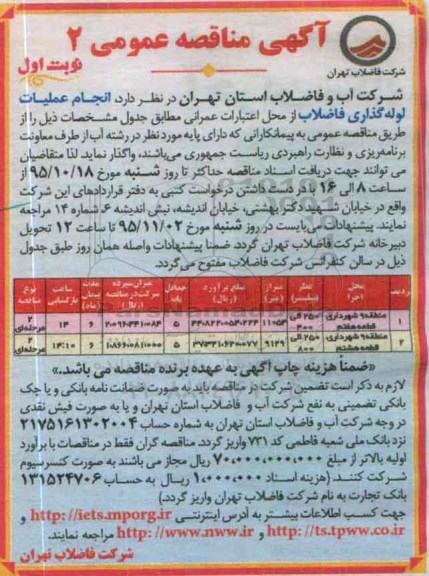 آگهی مناقصه عمومی ۲
نوبت اول
شرکت فاضلاب تهران
شرکت آب و فاضلاب استان تهران در نظر دارد، انجام عملیات
لوله‌گذاری فاضلاب از محل اعتبارات عمرانی مطابق جدول مشخصات ذیل را از
طریق مناقصه عمومی به پیمانکارانی که دارای پایه مورد نظر در رشته آب از طرف معاونت
برنامه‌ریزی و نظارت راهبردی ریاست جمهوری می‌باشند، واگذار نماید. لذا متقاضیان
می توانند جهت دریافت اسناد مناقصه حداکثر تا روز شنبه مورخ ۹۵/۱۰/۱۸ از
ساعت ۸ الی ۱۶ با در دست داشتن درخواست کتبی به دفتر قراردادهای این شرکت
واقع در خیابان شهید دکتر بهشتی، خیابان اندیشه، نبش اندیشه ۶، شماره ۱۴ مراجعه
نمایند. پیشنهادات می‌بایست در روز شنبه مورخ ۹۵/۱۱/۰۲ تا ساعت ۱۲ تحویل
دبیرخانه شرکت فاضلاب تهران گردد. ضمناً پیشنهادات واصله همان روز طبق جدول
ذیل در سالن کنفرانس شرکت فاضلاب مفتوح می‌گردد.
ردیف محل اجرا قطر (میلیمتر) متراژ (متر) مبلغ برآورد (ریال) حداقل پایه میزان سپرده شرکت در مناقصه (ریال) مدت پیمان (ماه) ساعت بازگشایی نوع مناقصه
۱ منطقه ۹ شهرداری قطعه هفتم ۲۵۰ الی ۴۰۰ ۱۱۰۵۴ ۵ ۶ ۱۴ ۲ مرحله‌ای
۲ منطقه ۹ شهرداری قطعه هشتم ۲۵۰ الی ۸۰۰ ۹۱۲۹ ۵ ۶ ۱۴:۱۰ ۲ مرحله‌ای
«ضمناً هزینه چاپ آگهی به عهده برنده مناقصه می باشد.»
لازم به ذکر است تضمین شرکت در مناقصه باید به صورت ضمانت نامه بانکی و یا چک
بانکی تضمینی به نفع شرکت آب و فاضلاب استان تهران و یا به صورت فیش نقدی
در وجه شرکت آب و فاضلاب استان تهران به شماره حساب ۲۱۷۵۱۶۱۳۰۲۰۰۴
نزد بانک ملی شعبه فاطمی کد ۷۳۱ واریز گردد. مناقصه گران فقط در مناقصات با برآورد
اولیه بالاتر از مبلغ ۷۰,۰۰۰,۰۰۰,۰۰۰ ریال مجاز می باشند به صورت کنسرسیوم
شرکت کنند. (هزینه اسناد ۱,۰۰۰,۰۰۰ ریال به حساب ۱۳۱۵۲۴۷۰۶
بانک تجارت به نام شرکت فاضلاب تهران واریز گردد)
جهت کسب اطلاعات بیشتر به آدرس اینترنتی http://iets.mporg.ir و
http://ts.tpww.co.ir و http://www.nww.ir مراجعه نمایند.
شرکت فاضلاب تهران